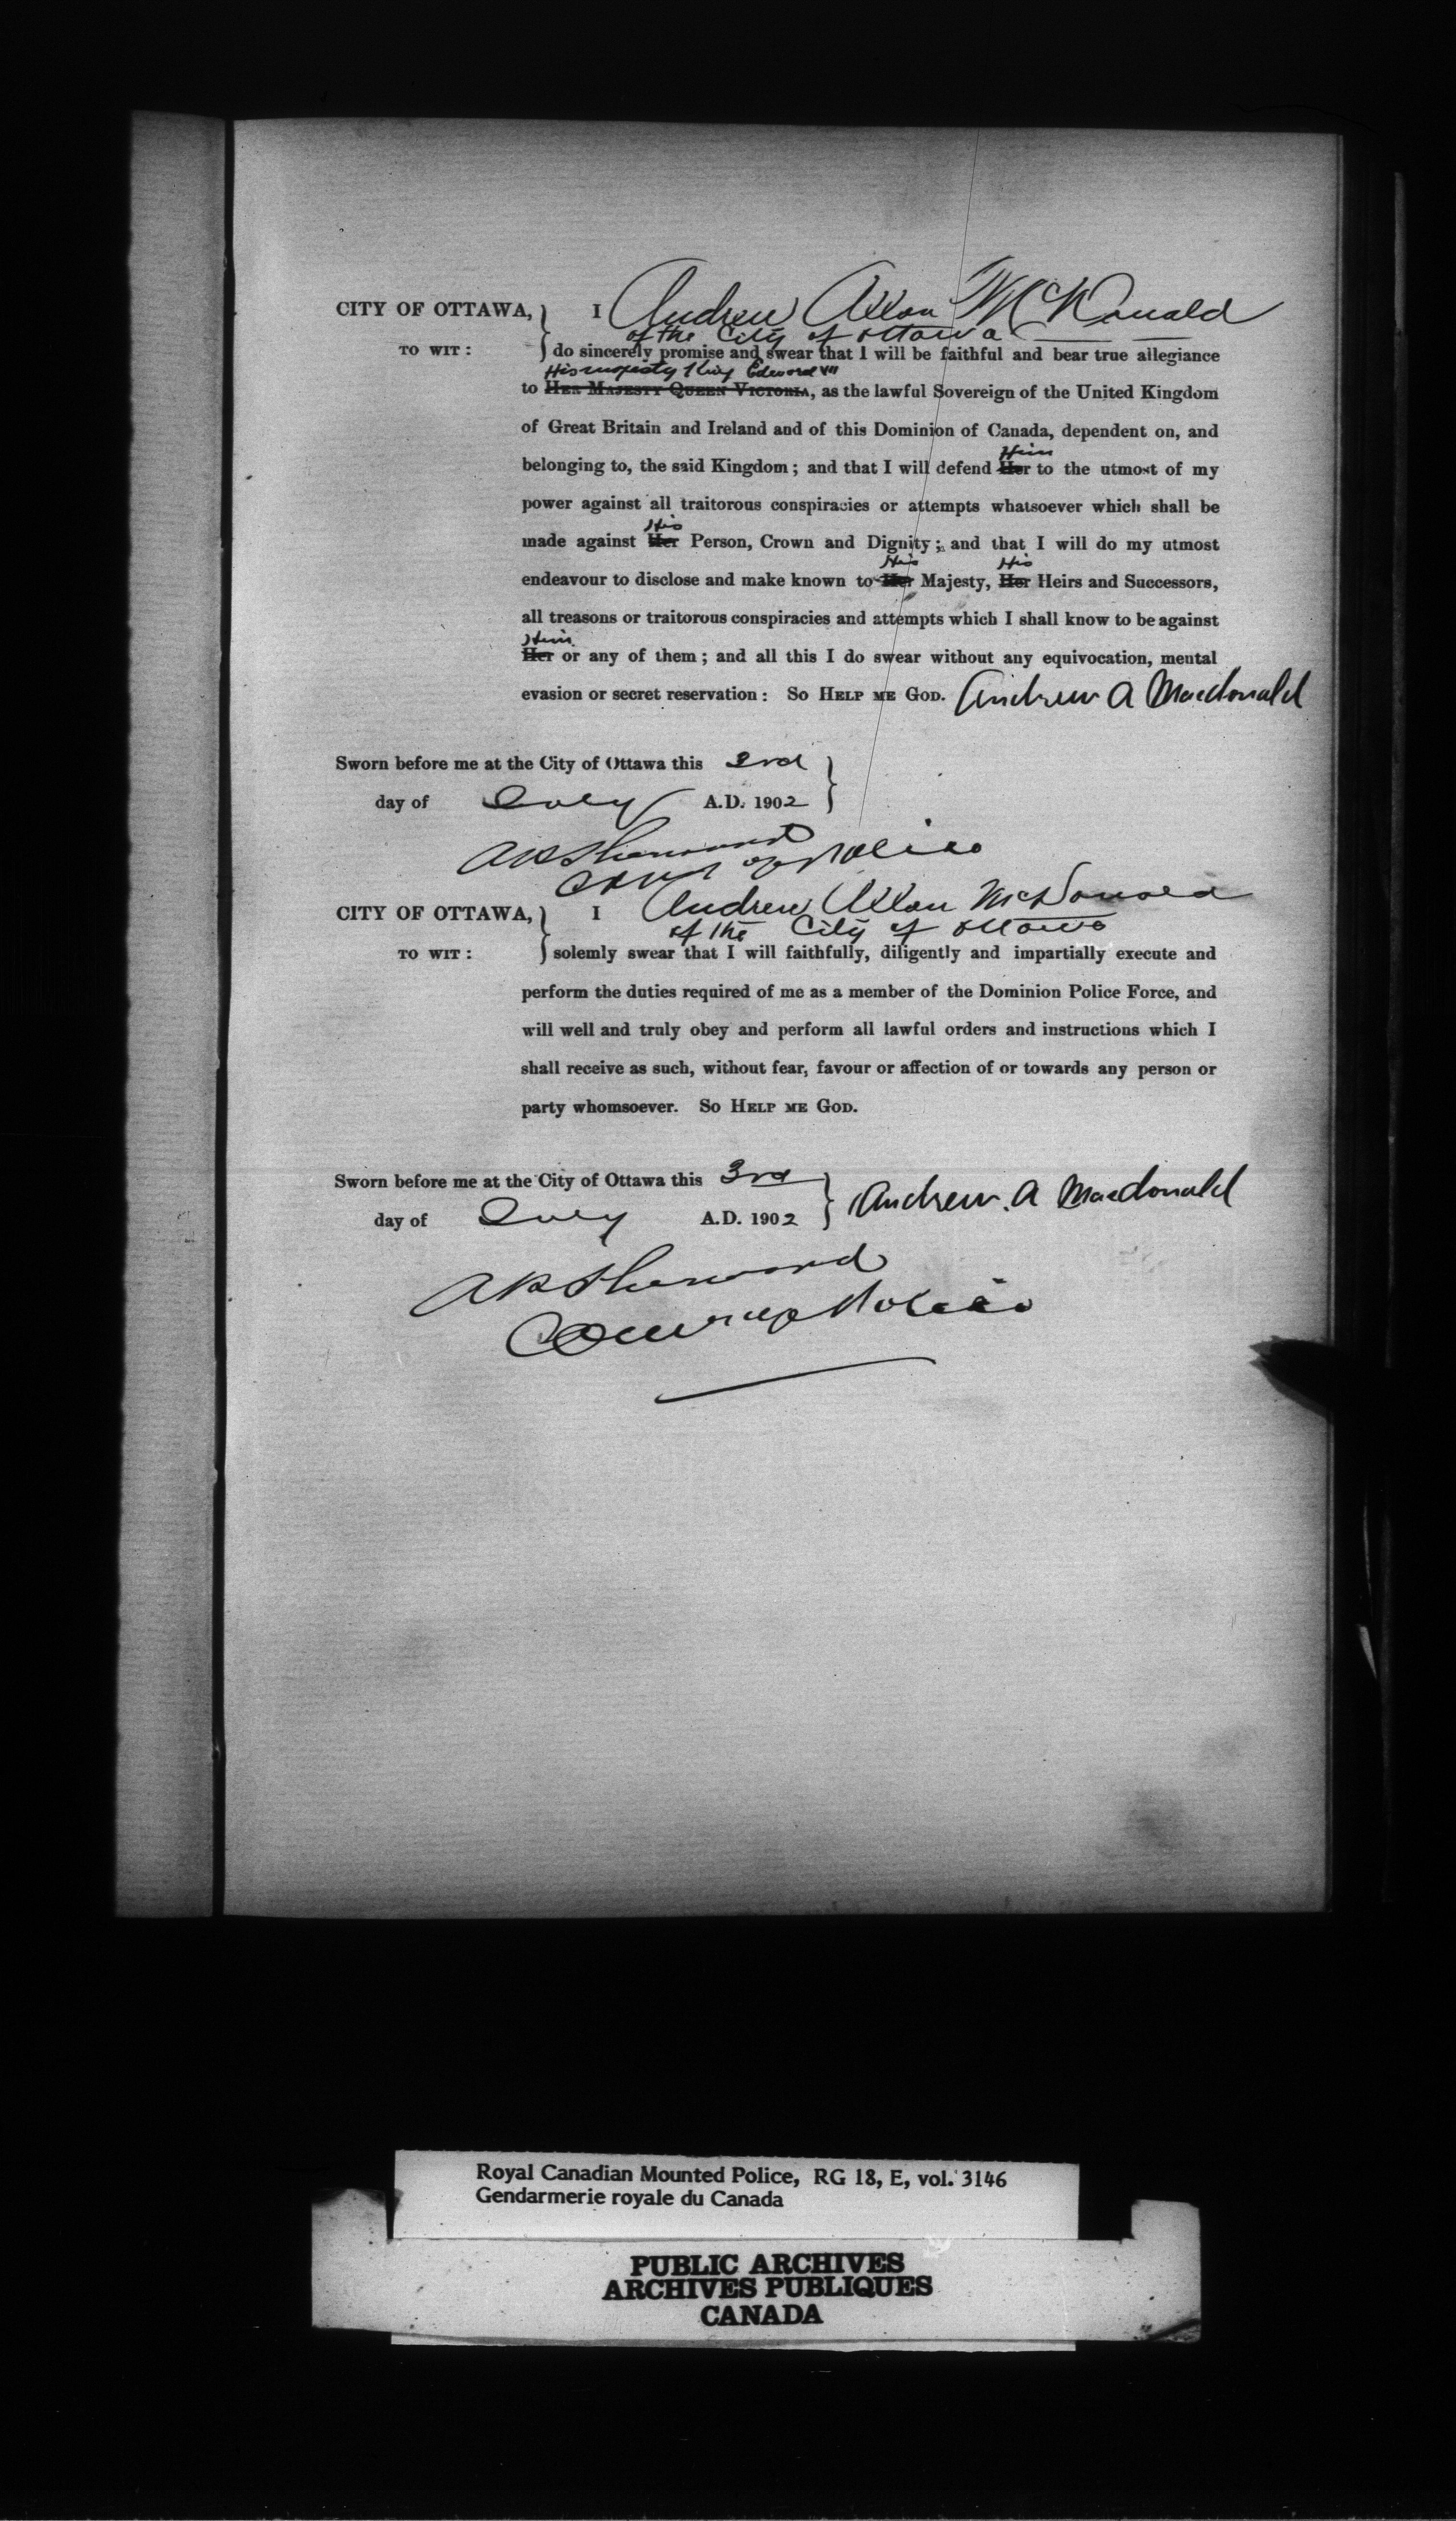 CITY OF OTTAWA, I Andrew Allan McDonald
of the City of Ottawa
TO WIT : do sincerely promise and swear that I will be faithful and bear true allegiance
His majesty King Edward VII
to HER MAJESTY QUEEN VICTORIA, as the lawful Sovereign of the United Kingdom
of Great Britain and Ireland and of this Dominion of Canada, dependent on, and
Him
belonging to, the said Kingdom ; and that I will defend Her to the utmost of my
power against all traitorous conspiracies or attempts whatsoever which shall be
His
made against Her Person, Crown and Dignity ; and that I will do my utmost
His His
endeavour to disclose and make known to Her Majesty, Her Heirs and Successors,
all treasons or traitorous conspiracies and attempts which I shall know to be against
Him
Her or any of them ; and all this I do swear without any equivocation, mental
evasion or secret reservation : SO HELP ME GOD. Andrew A Macdonald
Sworn before me at the City of Ottawa this 3rd
day of July A.D. 1902
A P Sherwood
Comr of Police
CITY OF OTTAWA, I Andrew Allan McDonald
of the City of Ottawa
TO WIT : solemly swear that I will faithfully, diligently and impartially execute and
perform the duties required of me as a member of the Dominion Police Force, and
will well and truly obey and perform all lawful orders and instructions which I
shall receive as such, without fear, favour or affection of or towards any person or
party whomsoever. SO HELP ME GOD.
Sworn before me at the City of Ottawa this 3rd
day of July A.D. 1902 Andrew. A Macdonald
A P Sherwood
Comr of Police
Royal Canadian Mounted Police, RG 18, E, vol. 3146
Gendarmerie royale du Canada
PUBLIC ARCHIVES
ARCHIVES PUBLIQUES
CANADA